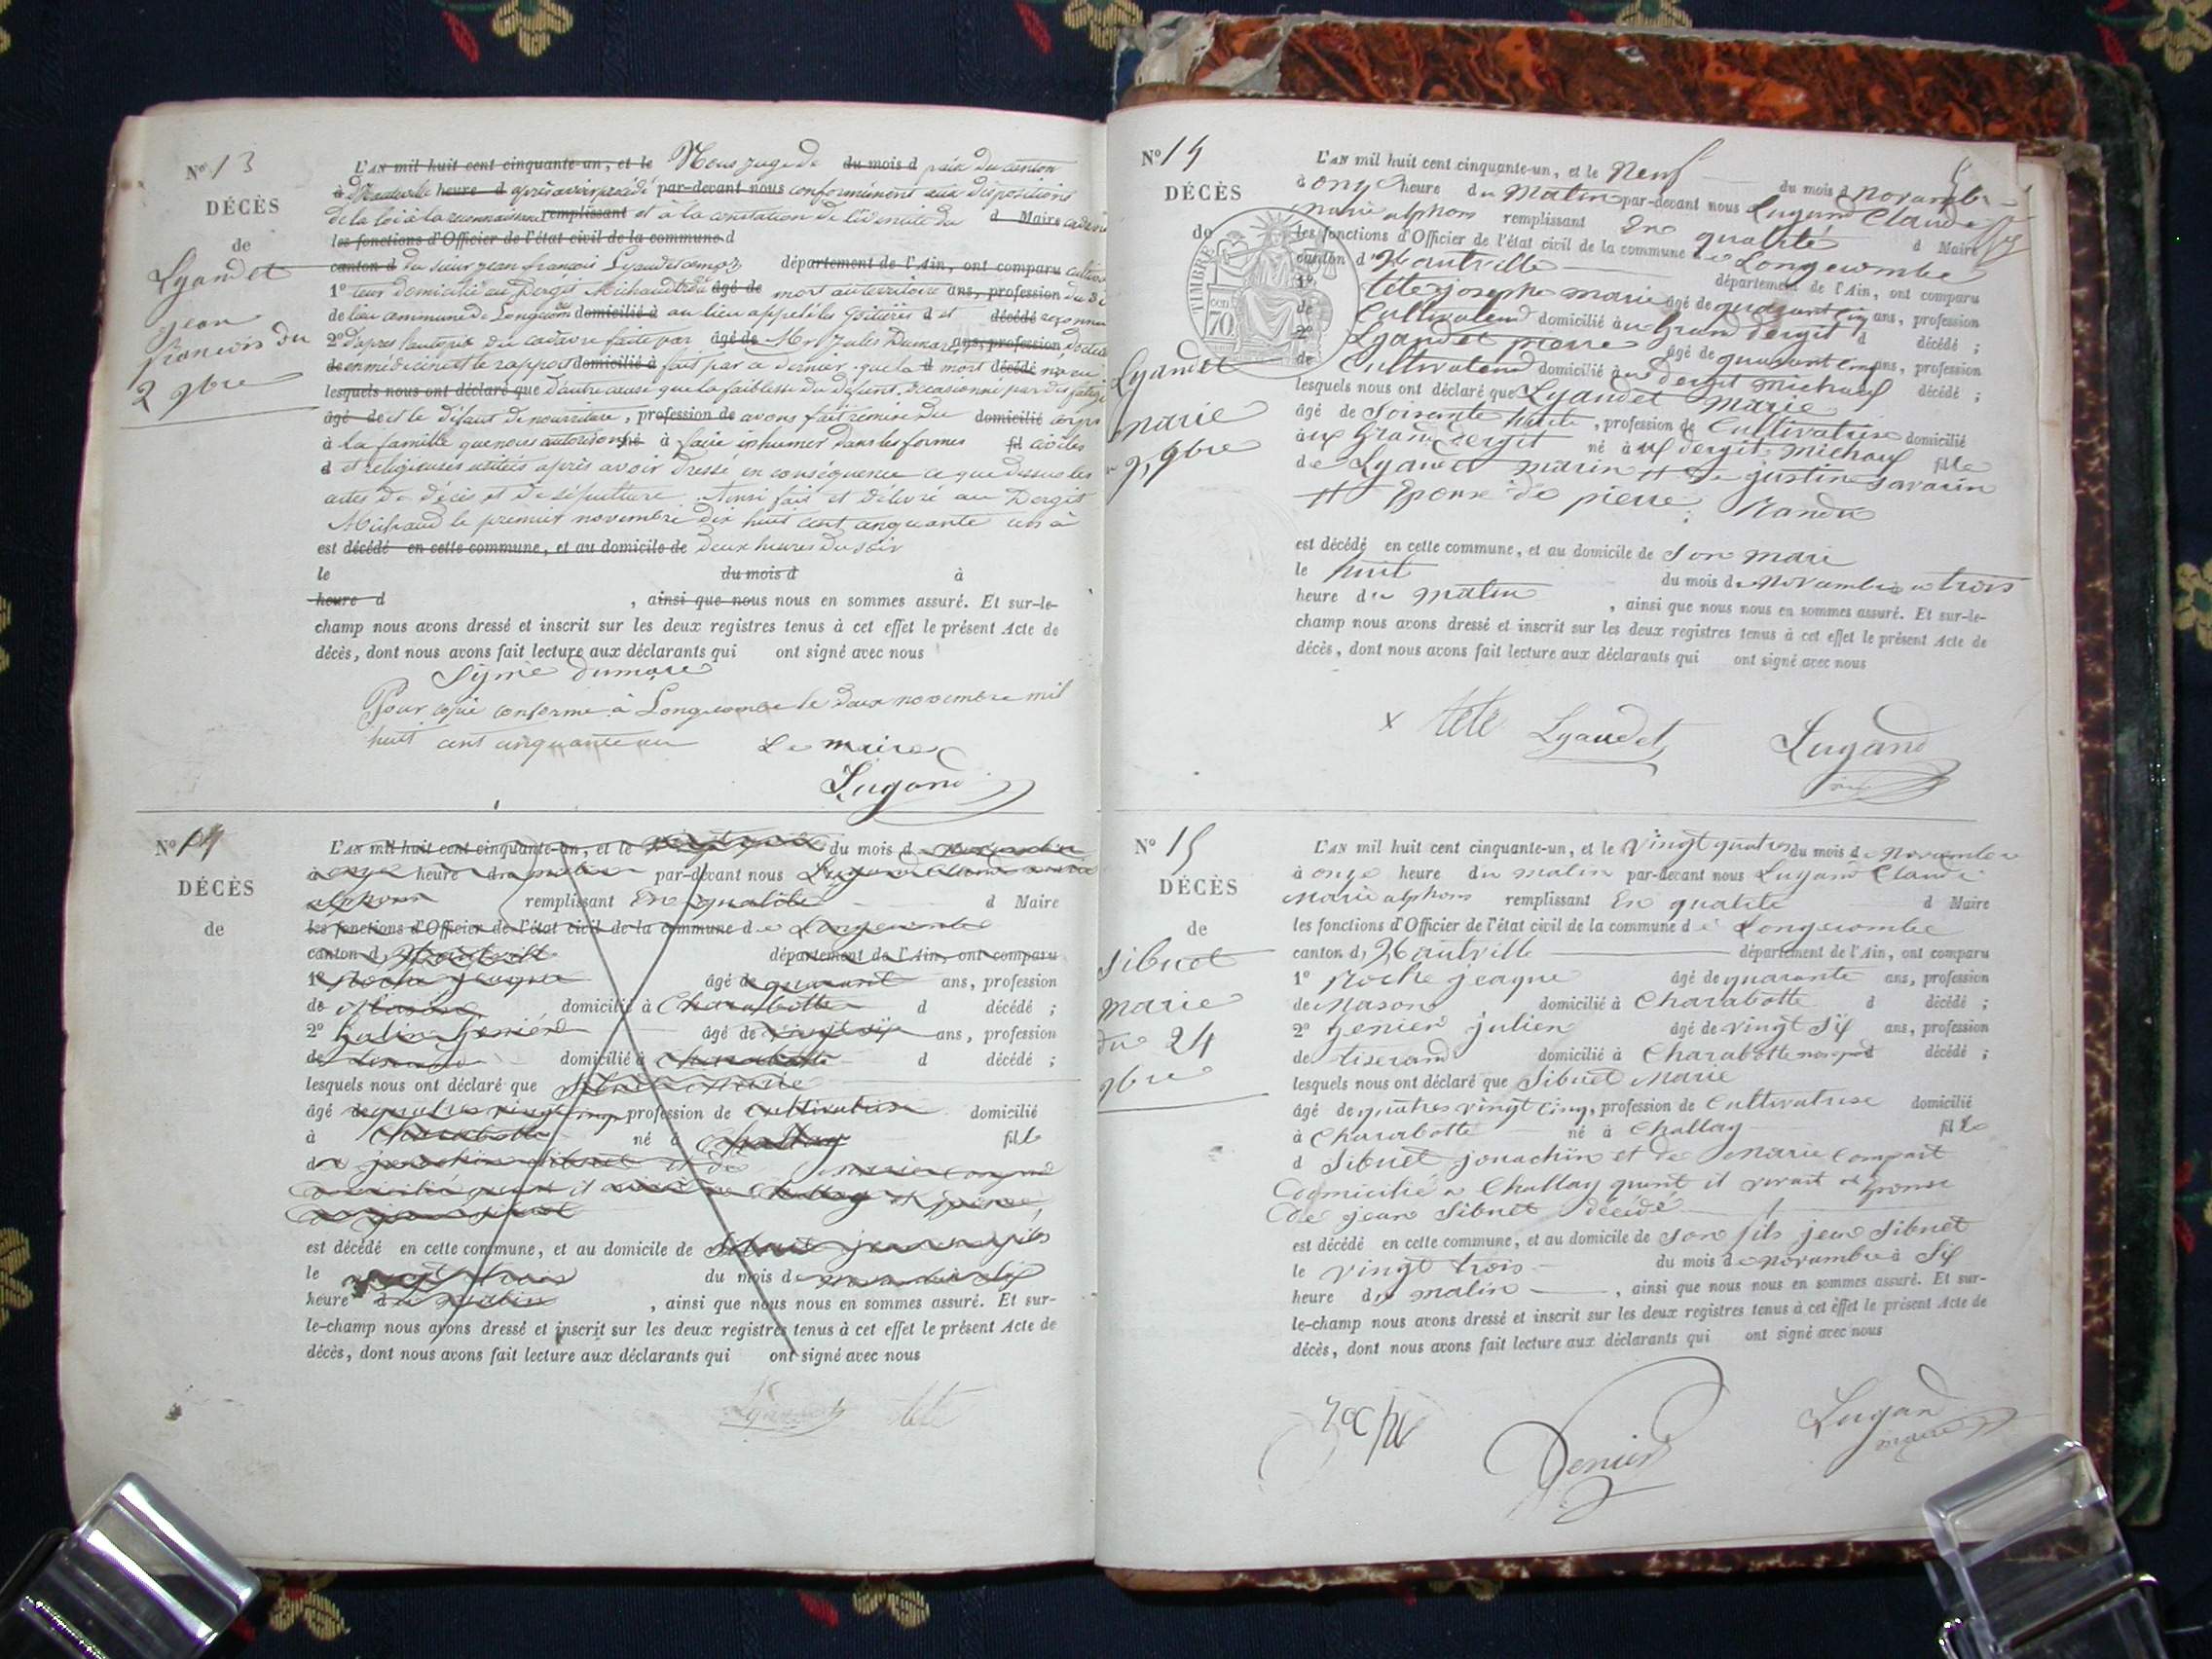 N° 13
DÉCÈS
de
Lyandet
jean
francois du
2 9bre
L'AN mil huit cent cinquante-un, et le Nous juge de du mois d paix du canton
d'hauteville heure d après avoir procédé par-devant nous conformément aux dispositions
de la loi à la reconnaissance remplissant et à la constatation de l'identité du d Maire cadavre
les fonctions d'Officier de l'état civil de la commune d
canton d du sieur jean françois Lyandet département de l'Ain, ont comparu cultiva
1° teur domicilié au Dergit Michaud âgé de mort au territoire ans, profession
de la commune de Longecombe domicilié à au lieu appelé les d et décédé reconnu
2° d'après l'autopsie du cadavre faite par âgé de Mr jules Dumare ans, profession docteur
de en médecine et le rapport domicilié à fait par ce dernier que la d mort décédé
lesquels nous ont déclaré que d'autre cause que la faiblesse du défunt, occasionné par des fatigues
âgé de et le défaut de nourriture, profession de avons fait remise du domicilié corps
à la famille que nous autorisons né à faire inhumer dans les formes fil civiles
d et religieuses usitées après avoir dressé en conséquence ce que dessus les
actes de décès et de sépulture. Ainsi fait et délivré au Dergit
Michaud le premier novembre dix huit cent cinquante un à
est décédé en cette commune, et au domicile de deux heures du soir
le du mois d à
heure d , ainsi que nous nous en sommes assuré. Et sur-le-
champ nous avons dressé et inscrit sur les deux registres tenus à cet effet le présent Acte de
décès, dont nous avons fait lecture aux déclarants qui ont signé avec nous
Signé dumare
Pour copie conforme à Longecombe le deux novembre mil
huit cent cinquante un Le maire
Lugand
N° 14
DÉCÈS
de
L'AN mil huit cent cinquante-un, et le du mois d novembre
à onze heure du matin par-devant nous Lugand Claude marie
alphons remplissant En qualité d Maire
les fonctions d'Officier de l'état civil de la commune de Longecombe
canton d hauteville département de l'Ain, ont comparu
1° Roche jacque âgé de quarante ans, profession
de Mason domicilié à Charabotte d décédé ;
2° julien Genier âgé de vingt six ans, profession
de tiserand domicilié à Charabotte d décédé ;
lesquels nous ont déclaré que Sibuet Marie
âgé de quatres vingt cinq profession de Cultivatrise domicilié
à Charabotte né à Challay fille
de joachin Sibuet et de marie
est décédé en cette commune, et au domicile de Sibuet jean
le vingt trois du mois de novembre à six
heure du matin , ainsi que nous nous en sommes assuré. Et sur-
le-champ nous avons dressé et inscrit sur les deux registres tenus à cet effet le présent Acte de
décès, dont nous avons fait lecture aux déclarants qui ont signé avec nous
Lyandet tété
N° 14
DÉCÈS
de
TIMBRE
70 cent
Lyandet
marie
9 9bre
L'AN mil huit cent cinquante-un, et le Neuf du mois d Novembre
à onze heure du Matin par-devant nous Lugand Claude
Marie alphons remplissant En qualité d Maire
les fonctions d'Officier de l'état civil de la commune de Longecombe
canton d'Hautville département de l'Ain, ont comparu
1° tété josephe marie âgé de quarant cinq ans, profession
de Cultivateur domicilié à au Grand dergit d décédé ;
2° Lyandet pierre âgé de quarante cinq ans, profession
de Cultivateur domicilié à au dergit michaud décédé ;
lesquels nous ont déclaré que Lyandet Marie
âgé de Soixante huite, profession de Cultivatrise domicilié
à au Grand dergit né à au dergit michaud fille
de Lyandet marin et de justine Savarin
Epouse de pierre Nandu
est décédé en cette commune, et au domicile de Son mari
le huit du mois de Novembre a trois
heure du matin , ainsi que nous nous en sommes assuré. Et sur-le-
champ nous avons dressé et inscrit sur les deux registres tenus à cet effet le présent Acte de
décès, dont nous avons fait lecture aux déclarants qui ont signé avec nous
x tété Lyaudet Lugand
N° 15
DÉCÈS
de
Sibuet
marie
du 24
9bre
L'AN mil huit cent cinquante-un, et le vingt quatre du mois de Novembre
à onze heure du matin par-devant nous Lugand Claude
Marie alphons remplissant En qualité d Maire
les fonctions d'Officier de l'état civil de la commune de Longecombe
canton d'Hautville département de l'Ain, ont comparu
1° Roche jeaque âgé de quarante ans, profession
de Mason domicilié à Charabotte d décédé ;
2° Genier julien âgé de vingt six ans, profession
de tiserand domicilié à Charabotte décédé ;
lesquels nous ont déclaré que Sibuet Marie
âgé de quatres vingt cinq, profession de Cultivatrise domicilié
à Charabotte né à Challay fille
d Sibuet jouachin et de Marie Compart
domicilié a Challay quant il vivait et Eponse
de jean Sibuet décédé
est décédé en cette commune, et au domicile de son fils jean Sibuet
le vingt trois du mois de novembre à Six
heure du matin , ainsi que nous nous en sommes assuré. Et sur-
le-champ nous avons dressé et inscrit sur les deux registres tenus à cet effet le présent Acte de
décès, dont nous avons fait lecture aux déclarants qui ont signé avec nous
Genier Lugand
maire